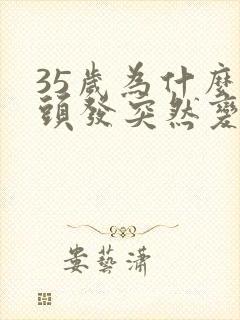 35歲為什麼
頭發突然變
娄藝瀟